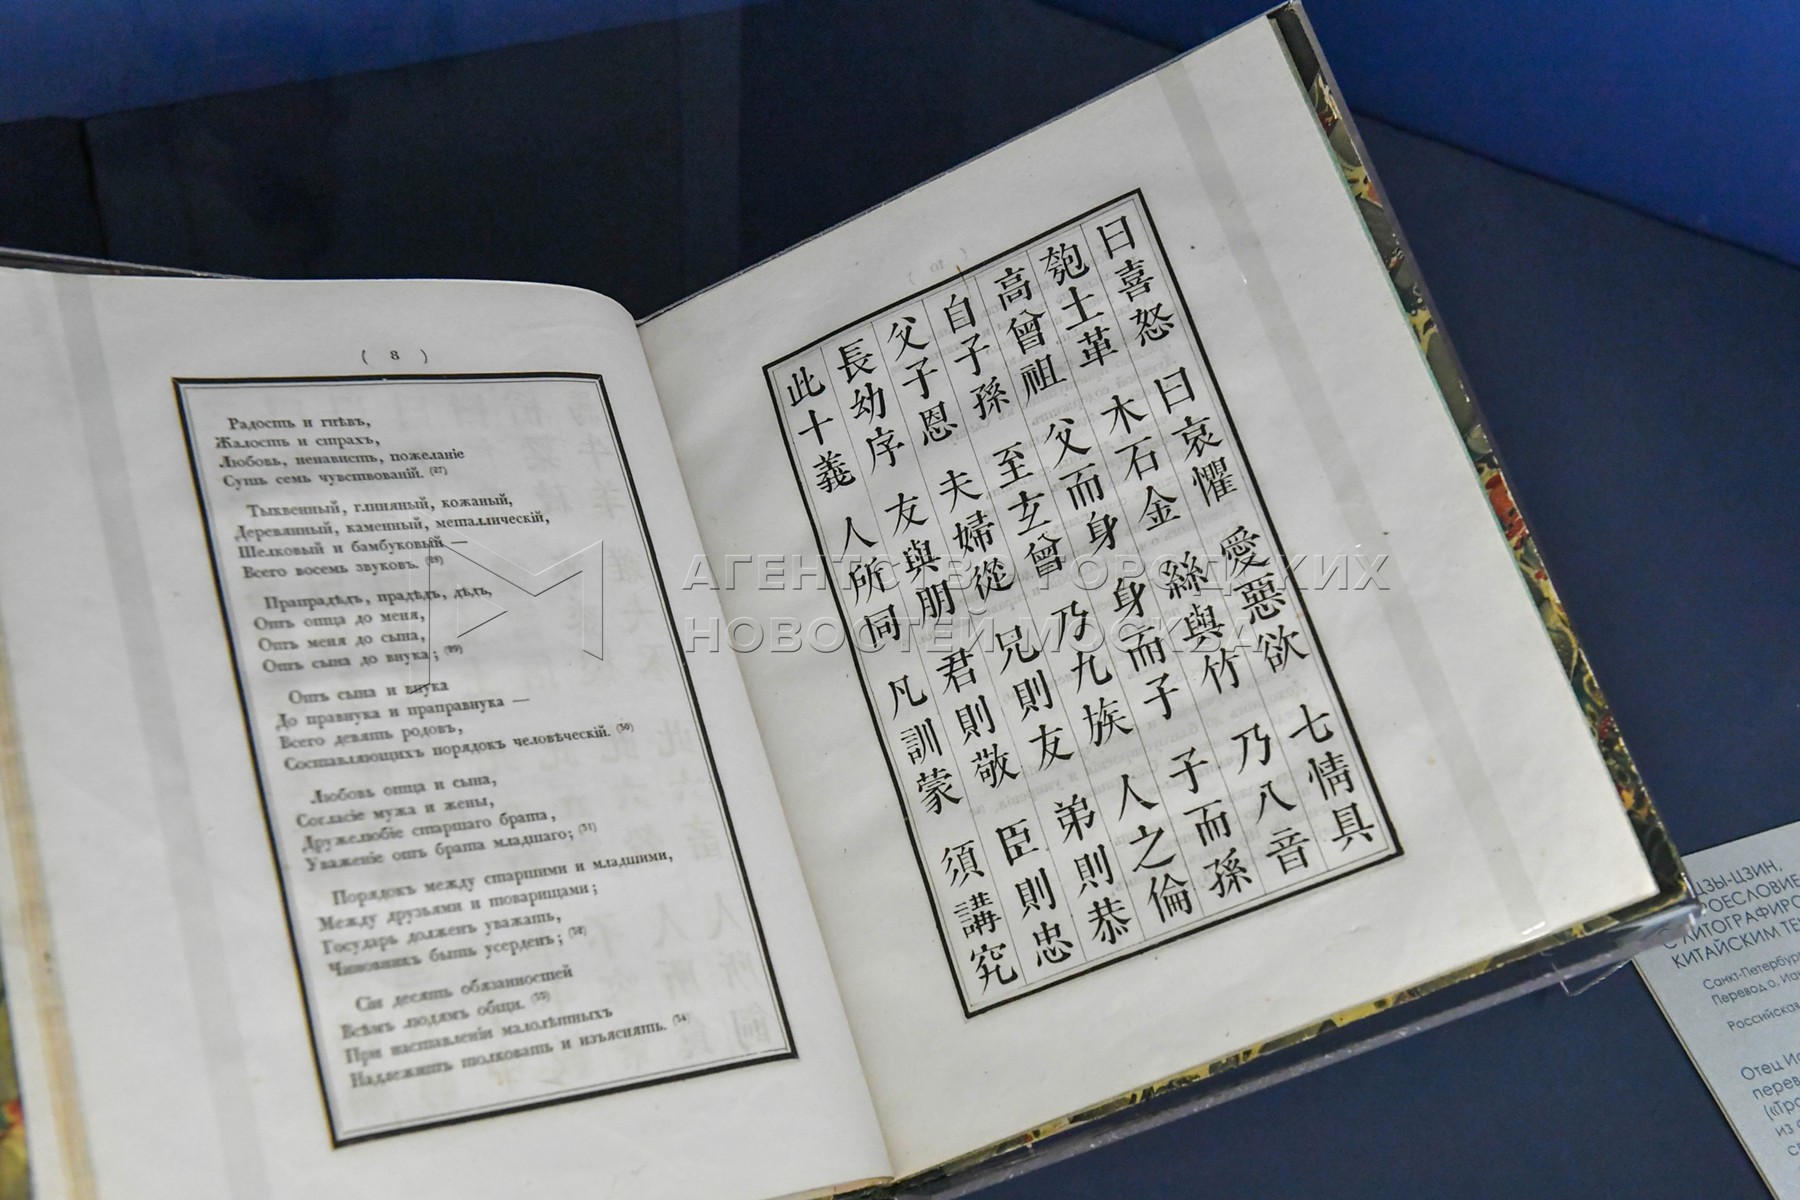 ( 8 )
Радость и гнѣвъ,
Жалость и страхъ,
Любовь, ненависть, пожеланіе
Суть семь чувствованій. (27)
Тыквенный, глиняный, кожаный,
Деревянный, каменный, металлическій,
Шелковый и бамбуковый —
Всего восемь звуковъ. (28)
Прапрадѣдъ, прадѣдъ, дѣдъ,
Отъ отца до меня,
Отъ меня до сына,
Отъ сына до внука; (29)
Отъ сына и внука
До правнука и праправнука —
Всего девять родовъ,
Составляющихъ порядокъ человѣческій. (30)
Любовь отца и сына,
Согласіе мужа и жены,
Дружелюбіе старшаго брата,
Уваженіе отъ брата младшаго; (31)
Порядокъ между старшими и младшими,
Между друзьями и товарищами;
Государь долженъ уважать,
Чиновникъ быть усерденъ; (32)
Сіи десять обязанностей
Всѣмъ людямъ общи. (33)
При наставленіи малолѣтныхъ
Надлежитъ толковать и изъяснять. (34)
曰喜怒 曰哀懼 愛惡欲 七情具
匏土革 木石金 絲與竹 乃八音
高曾祖 父而身 身而子 子而孫
自子孫 至玄曾 乃九族 人之倫
父子恩 夫婦從 兄則友 弟則恭
長幼序 友與朋 君則敬 臣則忠
此十義 人所同 凡訓蒙 須講究
АГЕНТСТВО ГОРОДСКИХ
НОВОСТЕЙ МОСКВА
ЦЗЫ-ЦЗИН,
РОЕСЛОВИЕ
С ЛИТОГРАФИРО
КИТАЙСКИМ ТЕ
Санкт-Петербург
Перевод о. Иа
Российская
Отец Иа
перев
(«Тро
из